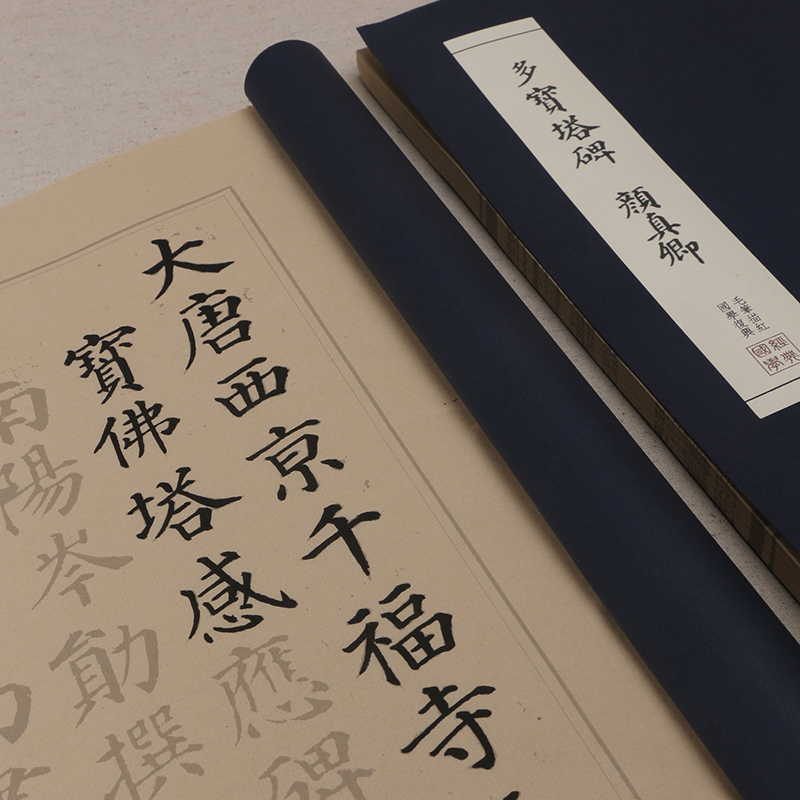 大唐西京千福寺
寶佛塔感應碑
南陽岑勛撰
多寶塔碑 顏真卿
毛筆描紅
國學復興
經典
國學